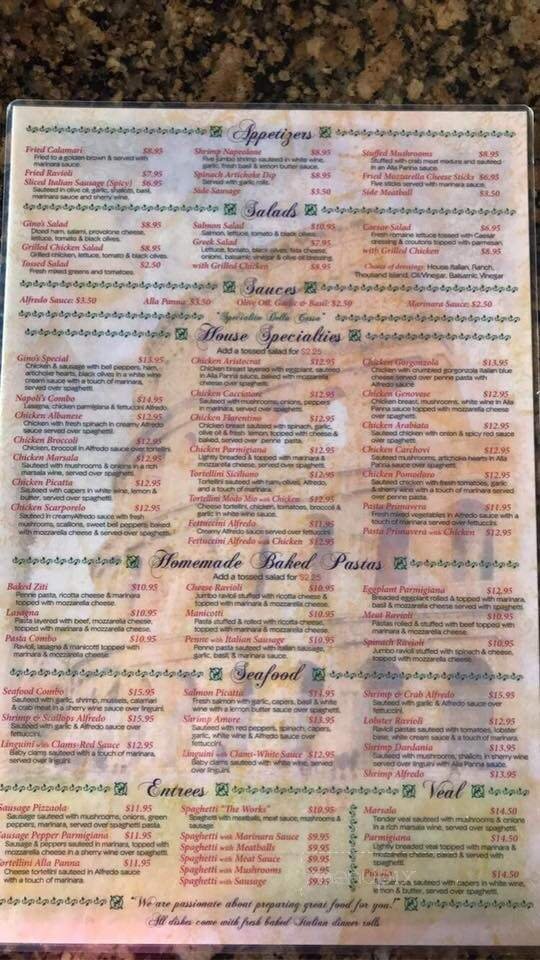 Appetizers
Fried Calamari $8.95
Fried to a golden brown & served with
marinara sauce.
Fried Ravioli $7.95
Sliced Italian Sausage (Spicy) $6.95
Sauteed in olive oil, garlic, shallots, basil,
marinara sauce and sherry wine.
Shrimp Napoleone $8.95
Five jumbo shrimp sauteed in white wine,
garlic, fresh basil & lemon butter sauce.
Spinach Artichoke Dip $8.95
Served with garlic rolls.
Side Sausage $3.50
Stuffed Mushrooms $8.95
Stuffed with crab meat mixture and sauteed
in an Alla Panna sauce.
Fried Mozzarella Cheese Sticks $6.95
Five sticks served with marinara sauce.
Side Meatball $3.50
Salads
Gino's Salad $8.95
Diced ham, salami, provolone cheese,
lettuce, tomato & black olives.
Grilled Chicken Salad $8.95
Grilled chicken, lettuce, tomato & black olives.
Tossed Salad $2.50
Fresh mixed greens and tomatoes.
Salmon Salad $10.95
Salmon, lettuce, tomato & black olives.
Greek Salad $7.95
Lettuce, tomato, black olives, feta cheese,
onions, balsamic vinegar & olive oil dressing.
with Grilled Chicken $8.95
Caesar Salad $6.95
Fresh romaine lettuce tossed with Caesar
dressing & croutons topped with parmesan.
with Grilled Chicken $8.95
Choice of dressings: House Italian, Ranch,
Thousand Island, Oil/Vinegar, Balsamic Vinegar
Sauces
Alfredo Sauce: $3.50 Alla Panna: $3.50 Olive Oil, Garlic & Basil: $2.50 Marinara Sauce: $2.50
"Specialita Della Casa"
House Specialties
Add a tossed salad for $2.25
Gino's Special $13.95
Chicken & sausage with bell peppers, ham,
artichoke hearts, black olives in a white wine
cream sauce with a touch of marinara,
served over spaghetti.
Napoli's Combo $14.95
Lasagna, chicken parmigiana & fettuccini Alfredo.
Chicken Albanese $12.95
Chicken with fresh spinach in creamy Alfredo
sauce served over spaghetti.
Chicken Broccoli $12.95
Chicken, broccoli in Alfredo sauce over tortellini.
Chicken Marsala $12.95
Sauteed with mushrooms & onions in a rich
marsala wine, served over spaghetti.
Chicken Picatta $12.95
Sauteed with capers in white wine, lemon &
butter, served over spaghetti.
Chicken Scarporelo $12.95
Sauteed in creamyAlfredo sauce with fresh
mushrooms, scallions, sweet bell peppers, baked
with mozzarella cheese & served over spaghetti.
Chicken Aristocrat $12.95
Chicken breast layered with eggplant, sauteed
in Alla Panna sauce, baked with mozzarella
cheese over spaghetti.
Chicken Cacciatore $12.95
Sauteed with mushrooms, onions, peppers
in marinara, served over spaghetti.
Chicken Fiorentino $12.95
Chicken breast sauteed with spinach, garlic,
olive oil & fresh lemon, topped with cheese &
baked, served over penne pasta.
Chicken Parmigiana $12.95
Lightly breaded & topped with marinara &
mozzarella cheese, served over spaghetti.
Tortellini Siciliano $12.95
Tortellini sauteed with ham, olives, Alfredo,
and a touch of marinara.
Tortellini Modo Mio with Chicken $12.95
Cheese tortellini, chicken, tomatoes, broccoli &
garlic in white wine sauce.
Fettuccini Alfredo $11.95
Creamy Alfredo sauce served over fettuccini.
Fettuccini Alfredo with Chicken $12.95
Chicken Gorgonzola $13.95
Chicken with crumbled gorgonzola Italian blue
cheese served over penne pasta with
Alfredo sauce
Chicken Genovese $12.95
Chicken breast, mushrooms, white wine in Alla
Panna sauce topped with mozzarella cheese
over spaghetti.
Chicken Arabiata $12.95
Sauteed chicken with onion & spicy red sauce
over spaghetti.
Chicken Carchovi $12.95
Sauteed mushrooms, artichoke hearts in Alla
Panna sauce over spaghetti.
Chicken Pomodoro $12.95
Sauteed chicken with fresh tomatoes, garlic
& sherry wine with a touch of marinara served
over penne pasta.
Pasta Primavera $11.95
Fresh mixed vegetables in Alfredo sauce with a
touch of marinara served over fettuccini.
Pasta Primavera with Chicken $12.95
Homemade Baked Pastas
Add a tossed salad for $2.25
Baked Ziti $10.95
Penne pasta, ricotta cheese & marinara
topped with mozzarella cheese.
Lasagna $10.95
Pasta layered with beef, mozzarella cheese,
topped with marinara & mozzarella cheese.
Pasta Combo $10.95
Ravioli, lasagna & manicotti topped with
marinara & mozzarella cheese.
Cheese Ravioli $10.95
Jumbo ravioli stuffed with ricotta cheese &
topped with marinara & mozzarella cheese.
Manicotti $10.95
Pasta stuffed & rolled with ricotta cheese,
topped with marinara & mozzarella cheese.
Penne with Italian Sausage $10.95
Penne pasta sauteed with italian sausage,
garlic, basil, & marinara sauce.
Eggplant Parmigiana $12.95
Breaded eggplant rolled & topped with marinara,
basil & mozzarella cheese served with spaghetti.
Meat Ravioli $10.95
Pastas rolled & stuffed with beef topped with
marinara & mozzarella cheese.
Spinach Ravioli $10.95
Jumbo ravioli stuffed with spinach & cheese,
topped with mozzarella cheese.
Seafood
Seafood Combo $15.95
Sauteed with garlic, shrimp, mussels, calamari
& crab meat in a sherry wine sauce over linguini.
Shrimp & Scallops Alfredo $15.95
Sauteed with garlic & Alfredo sauce over
fettuccini.
Linguini with Clams-Red Sauce $12.95
Baby clams sauteed with a touch of marinara,
served over linguini.
Salmon Picatta $14.95
Fresh salmon with garlic, capers, basil & white
wine with a lemon butter sauce over spaghetti.
Shrimp Amore $13.95
Sauteed with red peppers, spinach, capers,
garlic, white wine & Alfredo sauce over
fettuccini.
Linguini with Clams-White Sauce $12.95
Baby clams sauteed with white wine, served
over linguini.
Shrimp & Crab Alfredo $15.95
Sauteed with garlic & Alfredo sauce over
fettuccini.
Lobster Ravioli $12.95
Ravioli pastas sauteed with tomatoes, lobster
base, white cream sauce & a touch of marinara.
Shrimp Dardania $13.95
Sauteed with mushrooms, shallots, in sherry wine
served over linguini with Alla Panna sauce.
Shrimp Alfredo $13.95
Entrees
Sausage Pizzaola $11.95
Sausage sauteed with mushrooms, onions, green
peppers, marinara, served over spaghetti pasta.
Sausage Pepper Parmigiana $11.95
Sausage & peppers sauteed in marinara, topped with
mozzarella cheese in a sherry wine over spaghetti.
Tortellini Alla Panna $11.95
Cheese tortellini sauteed in Alfredo sauce
with a touch of marinara.
Spaghetti "The Works" $10.95
Spaghetti with meatballs, meat sauce, mushrooms &
sausage.
Spaghetti with Marinara Sauce $9.95
Spaghetti with Meatballs $9.95
Spaghetti with Meat Sauce $9.95
Spaghetti with Mushrooms $9.95
Spaghetti with Sausage $9.95
Veal
Marsala $14.50
Tender veal sauteed with mushrooms & onions
in a rich marsala wine, served over spaghetti.
Parmigiana $14.50
Lightly breaded veal topped with marinara &
mozzarella cheese, baked & served with
spaghetti.
Picatta $14.50
veal sauteed with capers in white wine,
lemon & butter, served over spaghetti.
"We are passionate about preparing great food for you!"
All dishes come with fresh baked Italian dinner rolls.